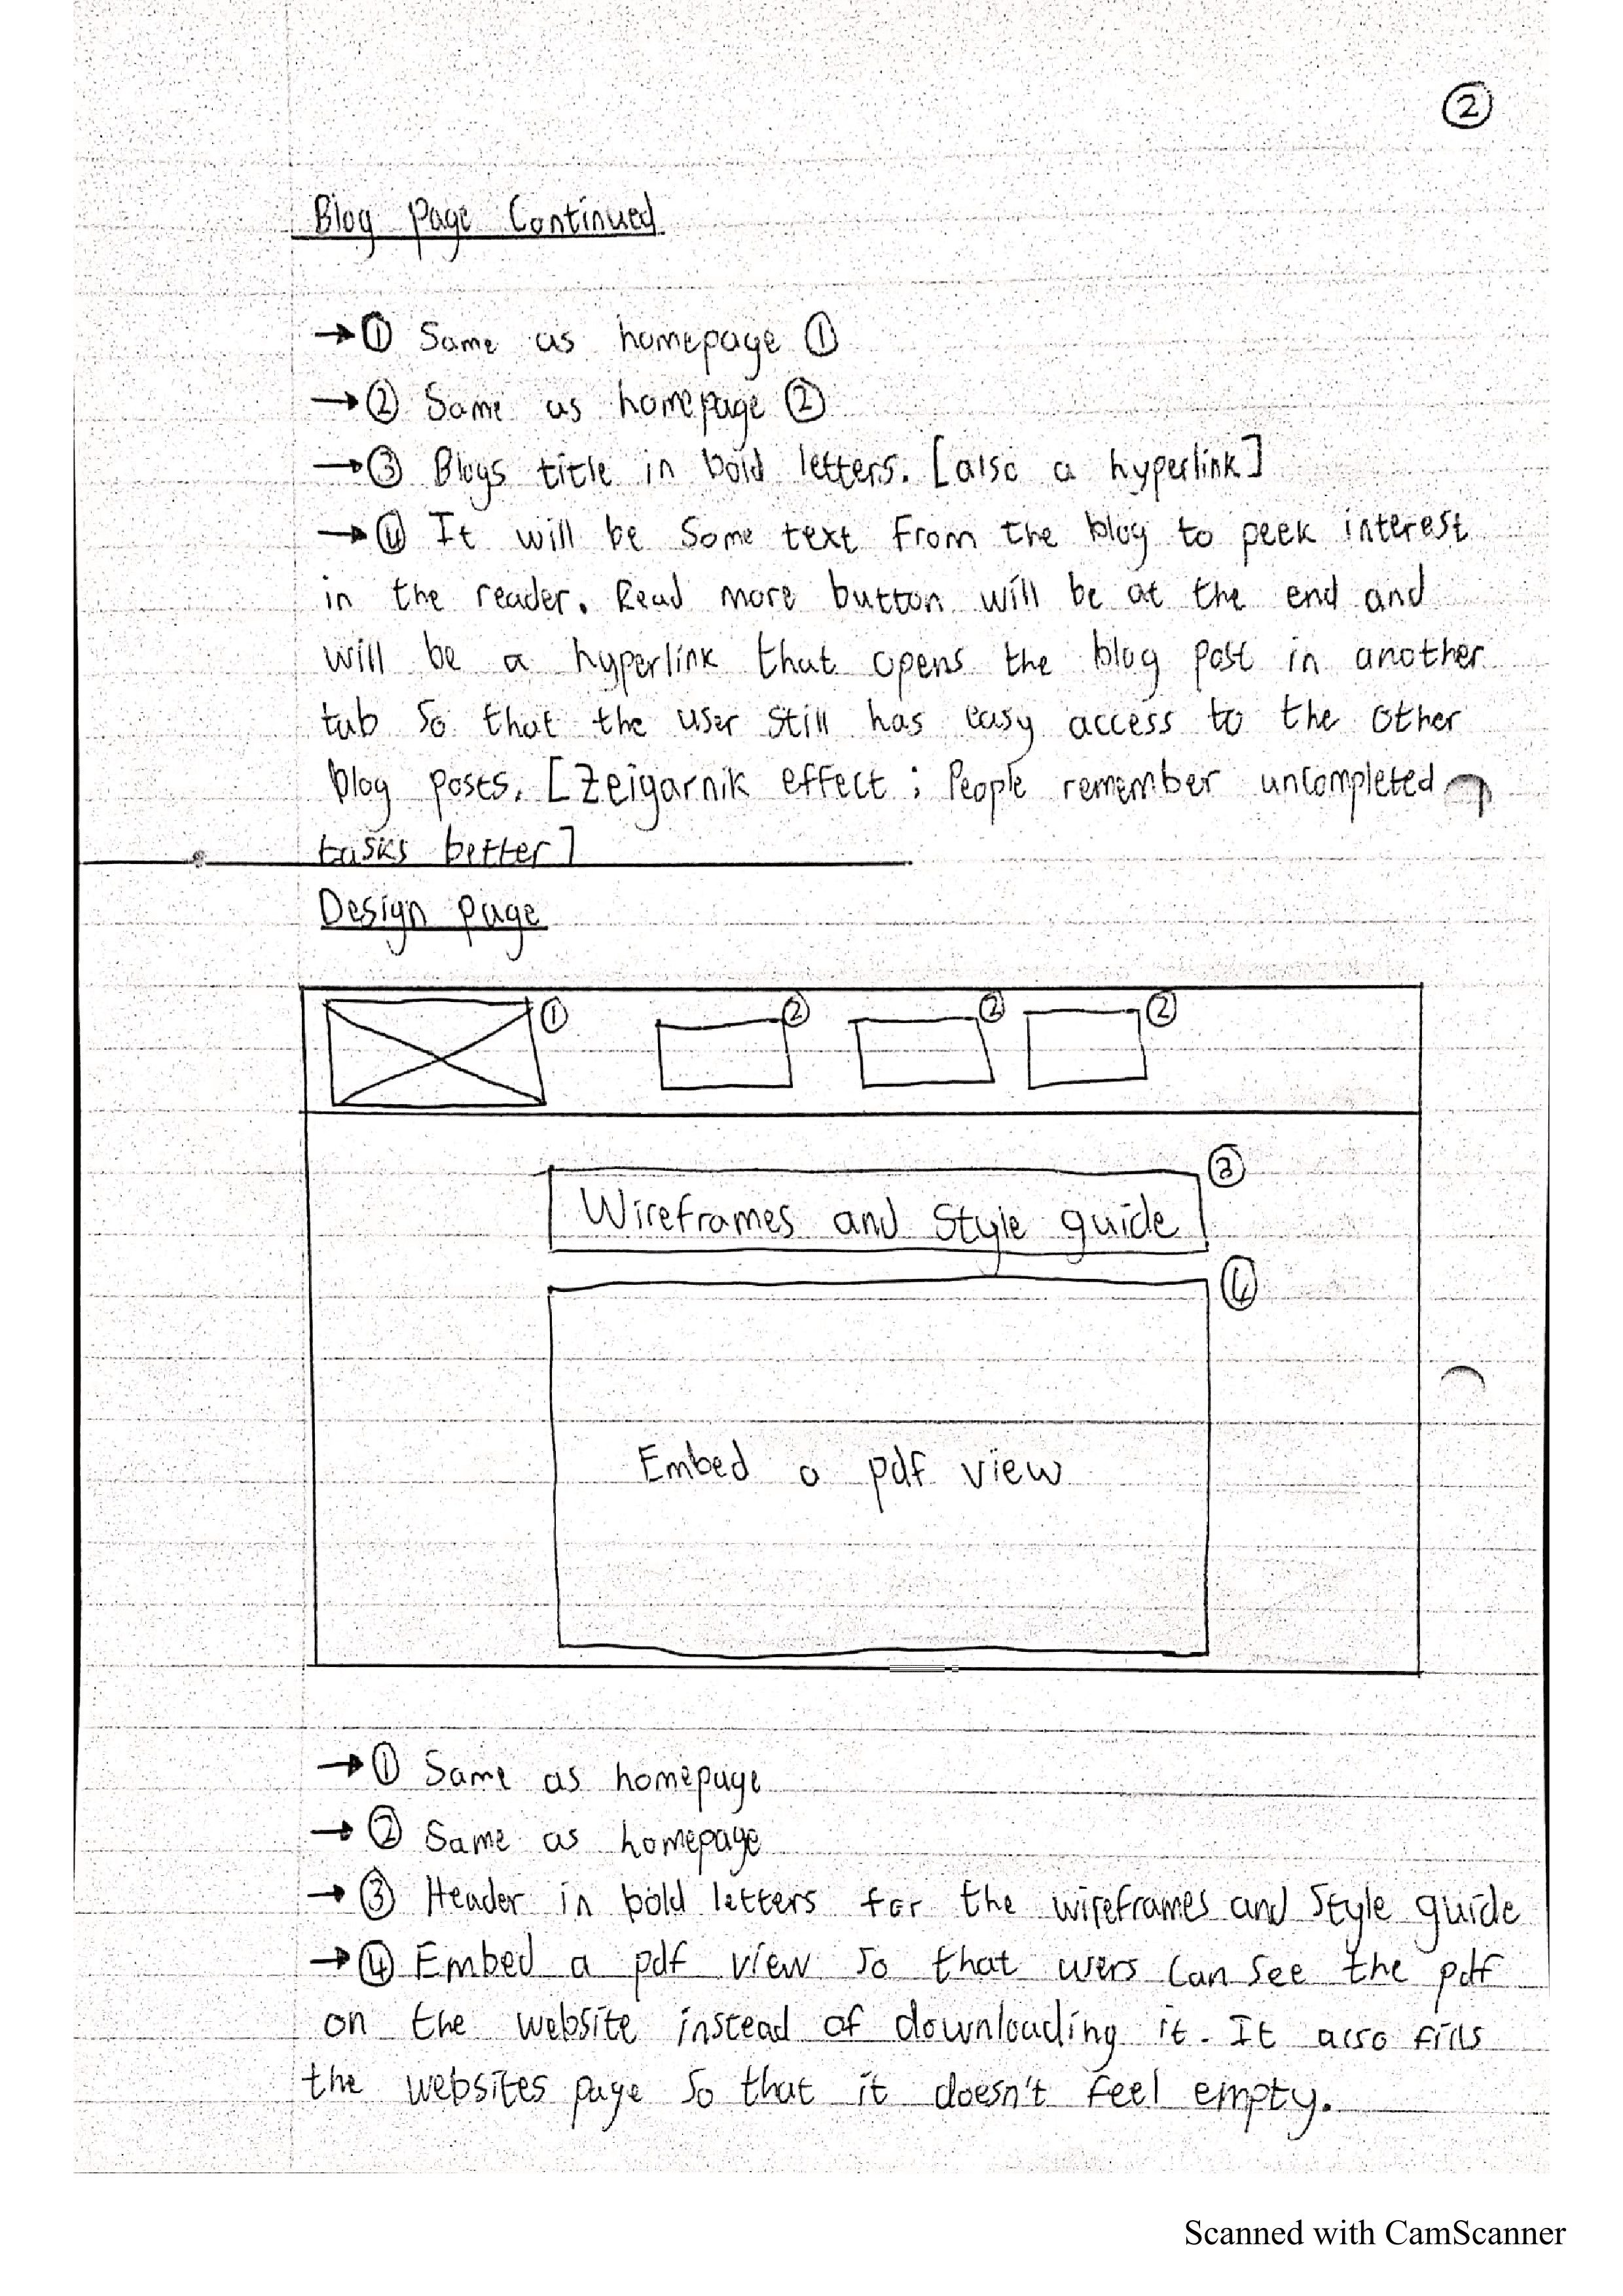 ②
Blog Page Continued
→① Same as homepage ①
→② Same as homepage ②
→③ Blogs title in bold letters. [also a hyperlink]
→④ It will be some text from the blog to peek interest
in the reader. Read more button will be at the end and
will be a hyperlink that opens the blog post in another
tab so that the user still has easy access to the other
blog posts. [Zeigarnik effect ; People remember uncompleted
tasks better]
Design page
① ② ② ②
③
Wireframes and Style guide
④
Embed a pdf view
→① Same as homepage
→② Same as homepage
→③ Header in bold letters for the wireframes and style guide
→④ Embed a pdf view so that users can see the pdf
on the website instead of downloading it. It also fills
the websites page so that it doesn't feel empty.
Scanned with CamScanner